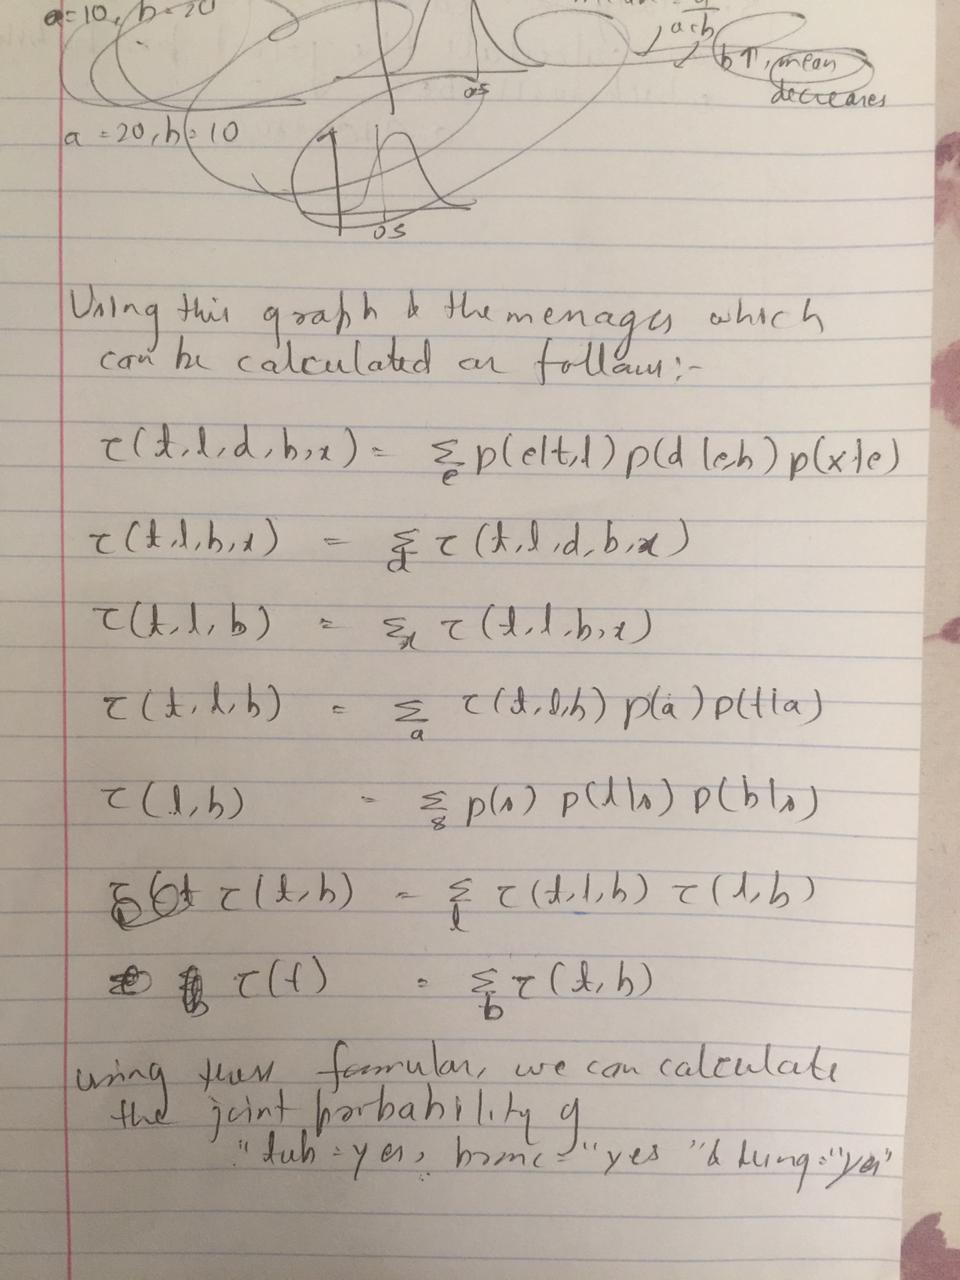 a=10, b=20
a+b
b↑, mean
decreases
0.5
a = 20, b = 10
0.5
Using this graph & the menages which
can be calculated as follow:-
τ(t,l,d,b,x) = Σe p(e|t,l) p(d|e,b) p(x|e)
τ(t,l,b,x) = Σd τ(t,l,d,b,x)
τ(t,l,b) = Σx τ(t,l,b,x)
τ(t,l,b) = Σa τ(t,l,b) p(a) p(t|a)
τ(l,b) = Σs p(s) p(l|s) p(b|s)
τ(t,b) = Σl τ(t,l,b) τ(l,b)
τ(t) = Σb τ(t,b)
using these formulas, we can calculate
the joint porbability of
"tub = yes, bronc = "yes" & lung = "yes"